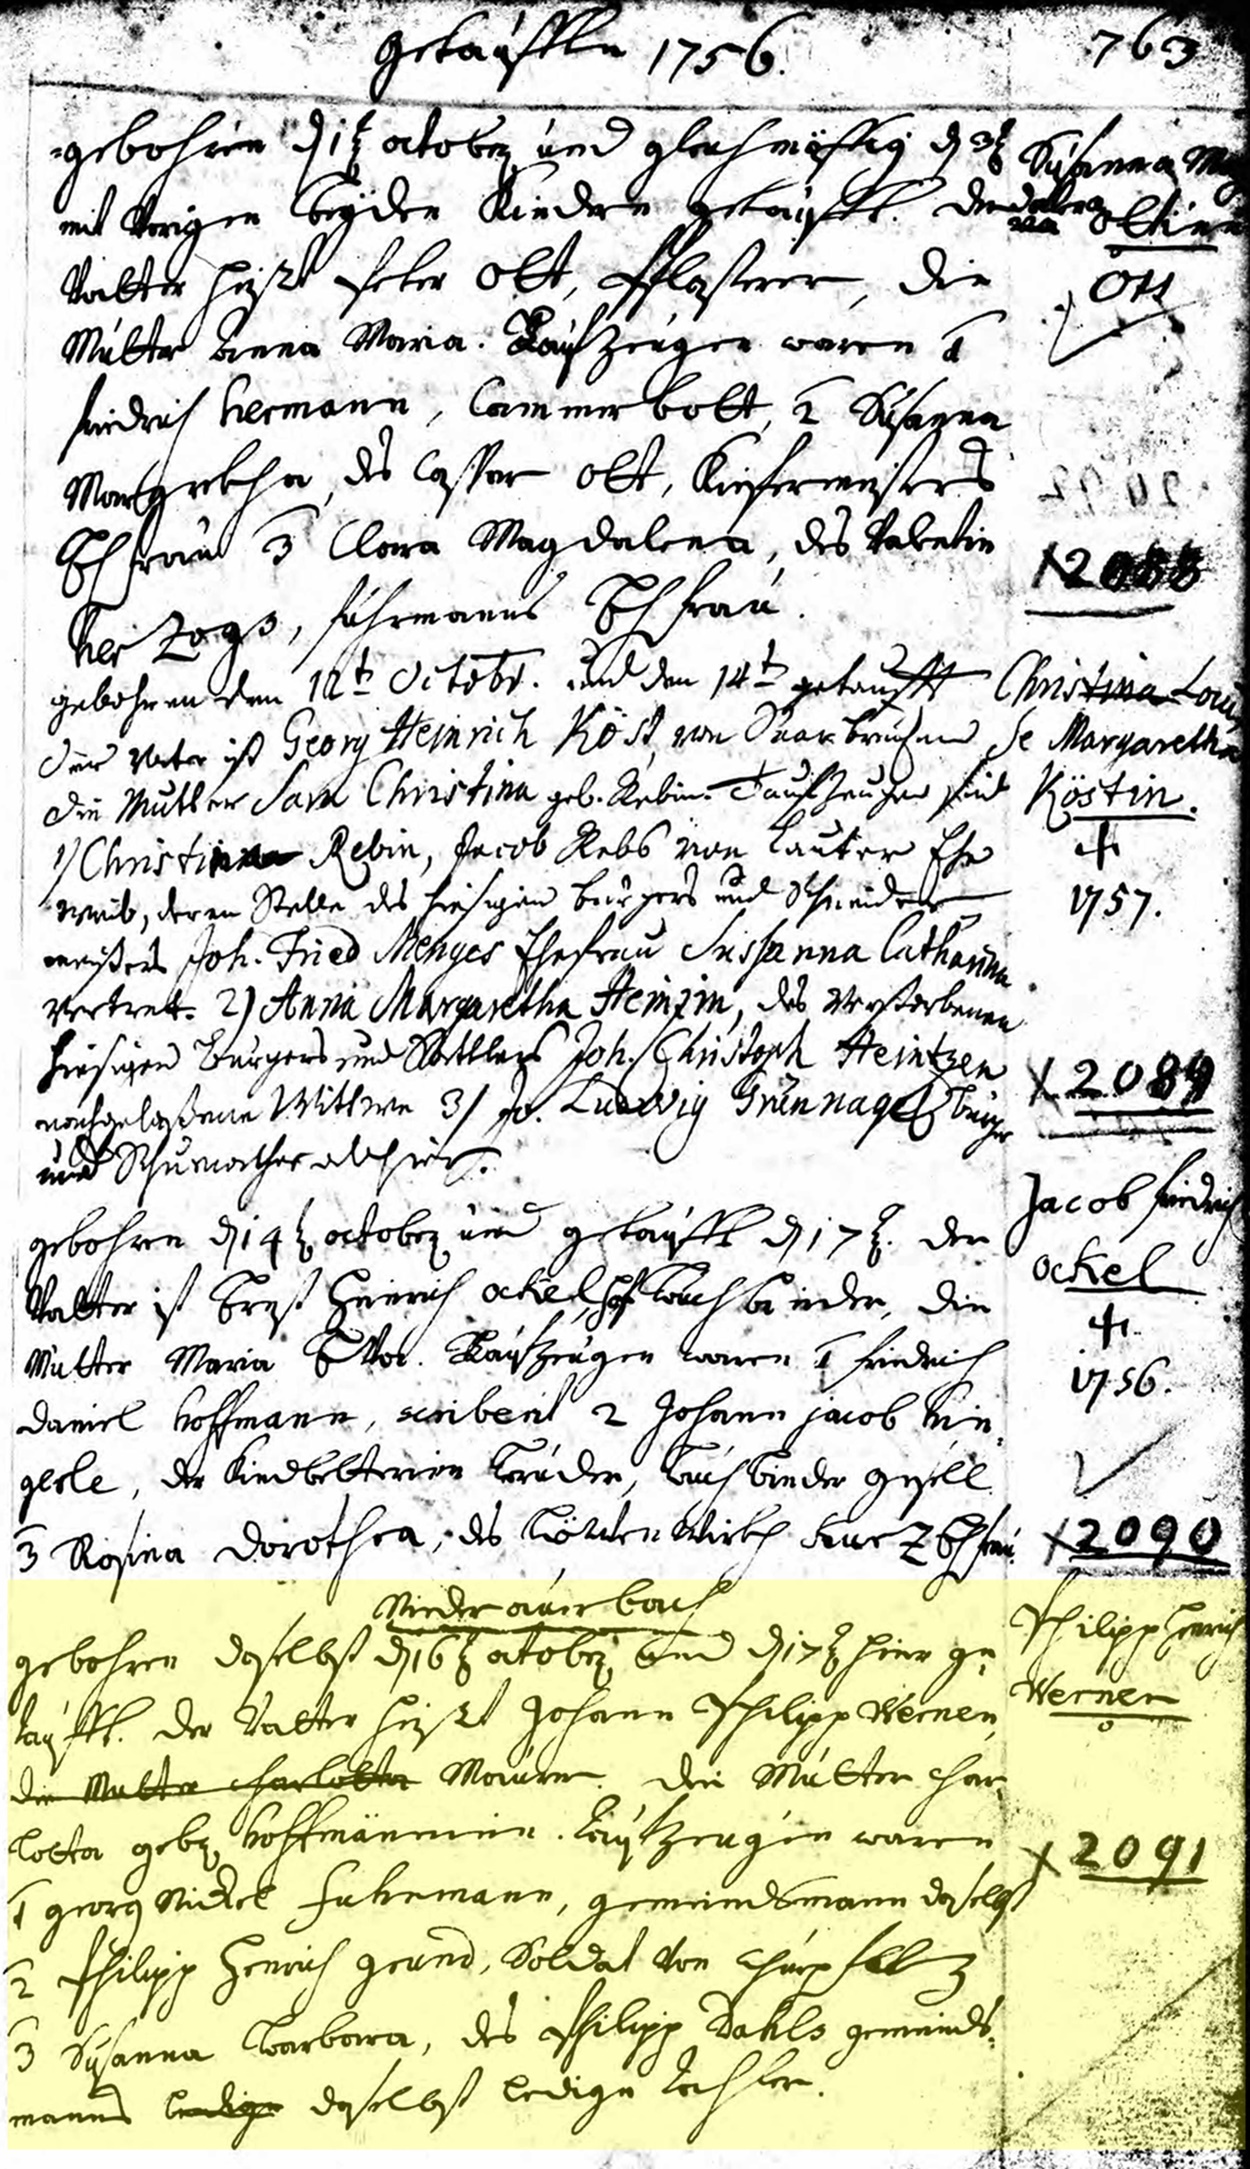 getaufften 1756.
763
gebohren d 1t octobr und gleichmässig d 3t
mit Vorigen beyden Kindern getaufft. der
Vatter heist Peter Ott, Pflasterer, die
Mutter Anna Maria. Taufzeugen waren 1
Friedrich Hermann, Cammerbott, 2 Susanna
Margretha, des Caspar Ott, Kiefermeisters
Ehfrau 3 Clara Magdalena, des Valentin
Herzogs, fuhrmanns Ehfrau.
Susanna
Ott
2088
gebohren den 12t Octobr. und den 14t getaufft
Der Vater ist Georg Heinrich Köst, von Saarbrücken
die Mutter Christina geb. Rebin. Taufzeugen sind
1) Christina Rebin, Jacob Rebs von Lauter Ehe
weib, deren Stelle des hiesigen burgers und Schneider
meisters Joh. Fried Menges Ehefrau Susanna Catharina
vertret. 2) Anna Margaretha Heinzin, des verstorbenen
hiesigen Burgers und Sattlers Joh. Christoph Heintzen
nachgelaßene Wittwe 3) Jo. Ludwig Grünnagel burger
und Schumacher alhier.
Christina Loui
se Margaretha
Köstin.
†
1757.
2089
gebohren d 14t octobr und getaufft d 17t. der
Vatter ist Ernst Heinrich Ockel, hof buchbinder, die
Mutter Maria Eva. Taufzeugen waren 1 Friedrich
Daniel Hoffmann, scribent 2 Johann Jacob
der Kindbetterin bruder, buchbinder gesell
3 Rosina Dorothea, des Löwenwirth Ehfrau.
Jacob Friedrich
Ockel
†
1756.
2090
Niederauerbach
gebohren daselbst d 16t octobr und d 17t hier ge
taufft. der Vatter heist Johann Philipp Werner,
die Mutter Charlotta Maurer. die Mutter Char
lotta gebr. Hoffmännin. Taufzeugen waren
1 Georg Nickel Fuhrmann, gemeindsmann daselbst
2 Philipp Henrich Grund, Soldat von Churpfaltz
3 Susanna Barbara, des Philipp Dahls gemeinds
manns ledige daselbst ledige tochter.
Philipp Henrich
Werner
2091